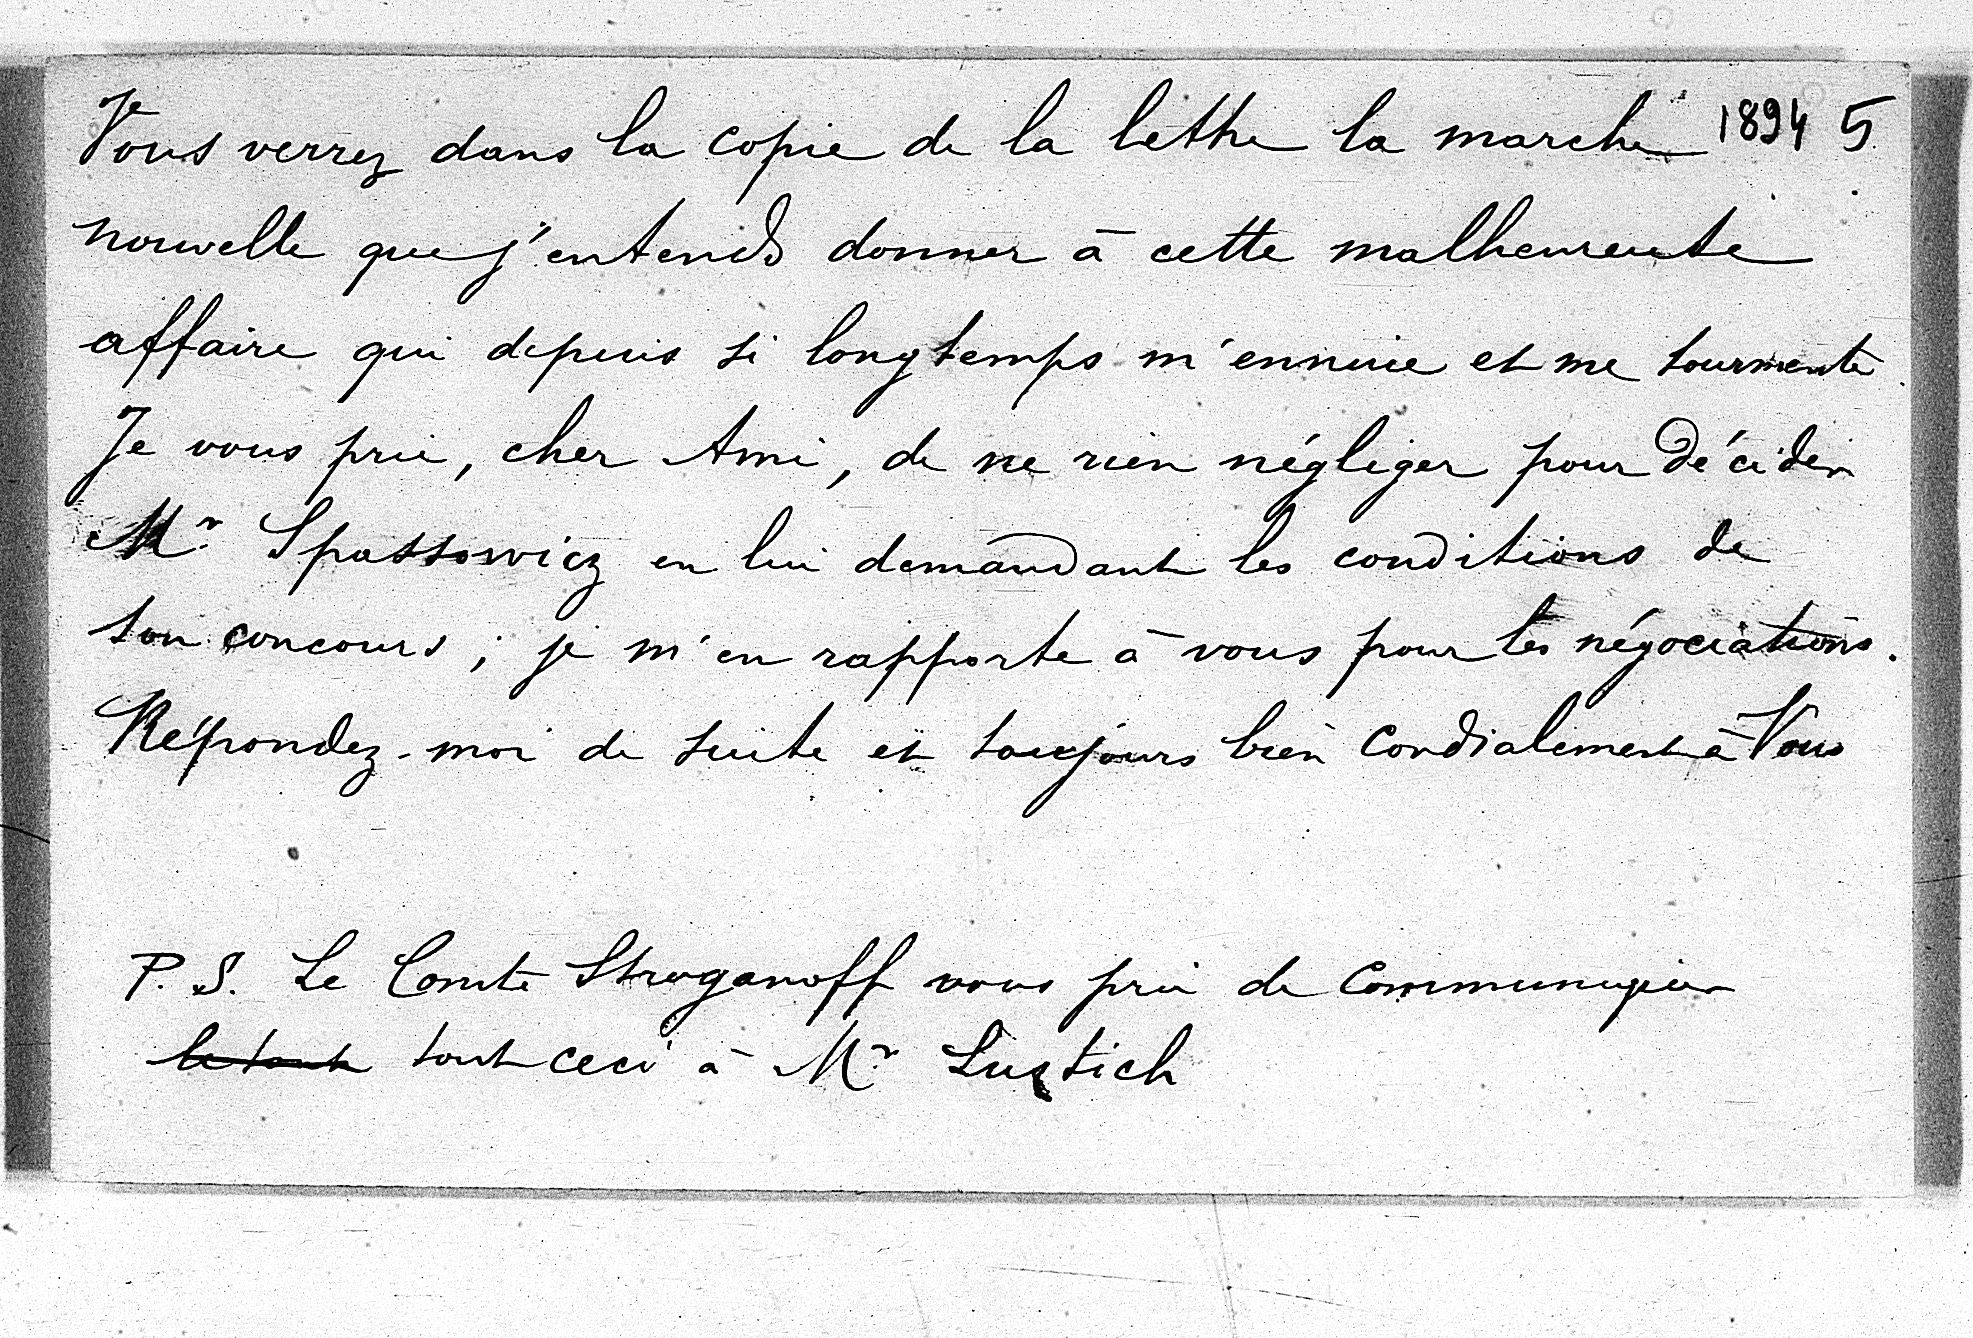 Vous verrez dans la copie de la lettre la marche 1894 5
nouvelle que j'entends donner à cette malheureuse
affaire qui depuis si longtemps m'ennuie et me tourmente.
Je vous prie, cher Ami, de ne rien négliger pour décider
Mr. Spassowicz en lui demandant les conditions de
son concours ; je m'en rapporte à vous pour les négociations.
Répondez-moi de suite et toujours bien cordialement à Vous
P. S. Le Comte Stroganoff vous prie de communiquer
le tout tout ceci à Mr. Lustich